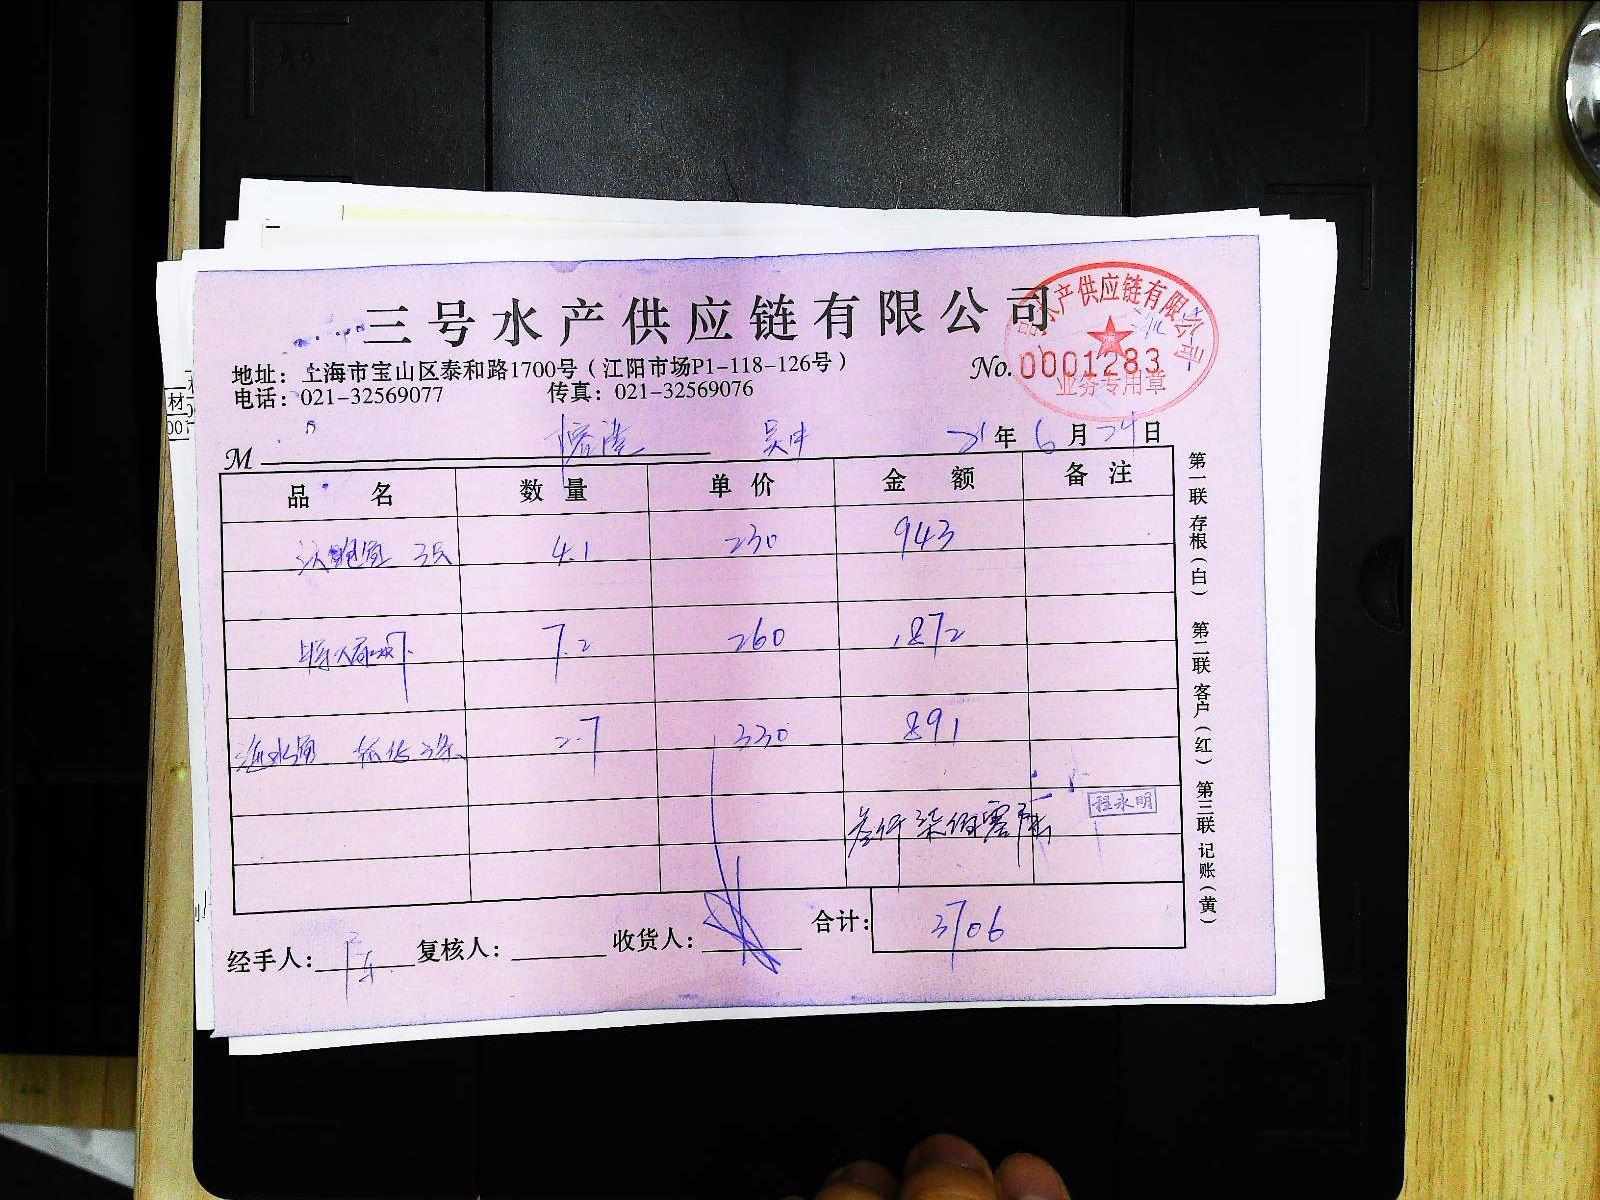 三号水产供应链有限公司
水产供应链有限公司
业务专用章
地址：上海市宝山区泰和路1700号（江阳市场P1-118-126号）
No. 0001283
电话：021-32569077 传真：021-32569076
M 21年6月24日
品名 数量 单价 金额 备注
4.1 230 943
7.2 260 1872
海水 2.7 330 891
叁仟柒佰零陆
程永明
合计： 3706
经手人： 复核人： 收货人：
第一联 存根（白） 第二联 客户（红） 第三联 记账（黄）
材
001